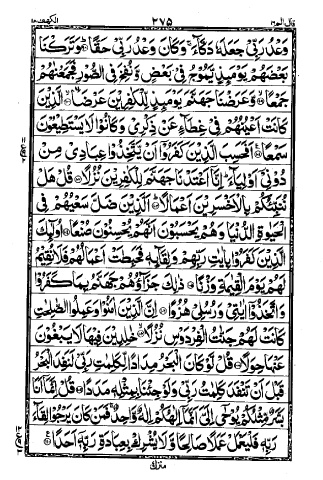 قال الم ١٦ ٢٧٥ الكهف ١٨
وَعْدُ رَبِّیْ جَعَلَهٗ دَكَّآءَ ۚ وَكَانَ وَعْدُ رَبِّیْ حَقًّا ۞ وَتَرَكْنَا
بَعْضَهُمْ یَوْمَىِٕذٍ یَّمُوْجُ فِیْ بَعْضٍ وَّنُفِخَ فِی الصُّوْرِ فَجَمَعْنٰهُمْ
جَمْعًا ۞ وَّعَرَضْنَا جَهَنَّمَ یَوْمَىِٕذٍ لِّلْكٰفِرِیْنَ عَرْضًا ۞ الَّذِیْنَ
كَانَتْ اَعْیُنُهُمْ فِیْ غِطَآءٍ عَنْ ذِكْرِیْ وَكَانُوْا لَا یَسْتَطِیْعُوْنَ
سَمْعًا ۞ اَفَحَسِبَ الَّذِیْنَ كَفَرُوْۤا اَنْ یَّتَّخِذُوْا عِبَادِیْ مِنْ
دُوْنِیْۤ اَوْلِیَآءَ ؕ اِنَّاۤ اَعْتَدْنَا جَهَنَّمَ لِلْكٰفِرِیْنَ نُزُلًا ۞ قُلْ هَلْ
نُنَبِّئُكُمْ بِالْاَخْسَرِیْنَ اَعْمَالًا ۞ اَلَّذِیْنَ ضَلَّ سَعْیُهُمْ فِی
الْحَیٰوةِ الدُّنْیَا وَهُمْ یَحْسَبُوْنَ اَنَّهُمْ یُحْسِنُوْنَ صُنْعًا ۞ اُولٰٓىِٕكَ
الَّذِیْنَ كَفَرُوْا بِاٰیٰتِ رَبِّهِمْ وَلِقَآىِٕهٖ فَحَبِطَتْ اَعْمَالُهُمْ فَلَا نُقِیْمُ
لَهُمْ یَوْمَ الْقِیٰمَةِ وَزْنًا ۞ ذٰلِكَ جَزَآؤُهُمْ جَهَنَّمُ بِمَا كَفَرُوْا
وَاتَّخَذُوْۤا اٰیٰتِیْ وَرُسُلِیْ هُزُوًا ۞ اِنَّ الَّذِیْنَ اٰمَنُوْا وَعَمِلُوا الصّٰلِحٰتِ
كَانَتْ لَهُمْ جَنّٰتُ الْفِرْدَوْسِ نُزُلًا ۞ خٰلِدِیْنَ فِیْهَا لَا یَبْغُوْنَ
عَنْهَا حِوَلًا ۞ قُلْ لَّوْ كَانَ الْبَحْرُ مِدَادًا لِّكَلِمٰتِ رَبِّیْ لَنَفِدَ الْبَحْرُ
قَبْلَ اَنْ تَنْفَدَ كَلِمٰتُ رَبِّیْ وَلَوْ جِئْنَا بِمِثْلِهٖ مَدَدًا ۞ قُلْ اِنَّمَاۤ اَنَا
بَشَرٌ مِّثْلُكُمْ یُوْحٰۤی اِلَیَّ اَنَّمَاۤ اِلٰهُكُمْ اِلٰهٌ وَّاحِدٌ ۚ فَمَنْ كَانَ یَرْجُوْا لِقَآءَ
رَبِّهٖ فَلْیَعْمَلْ عَمَلًا صَالِحًا وَّلَا یُشْرِكْ بِعِبَادَةِ رَبِّهٖۤ اَحَدًا ۞
منزل